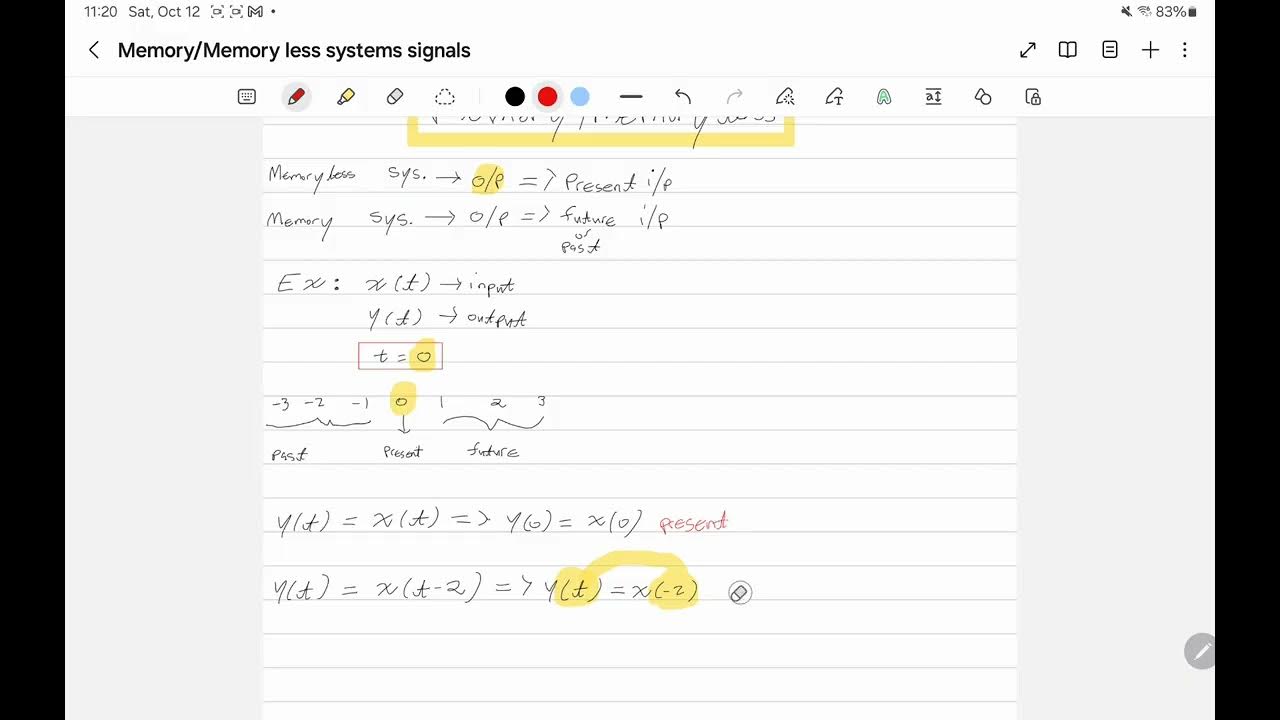 11:20 Sat, Oct 12 83%
Memory/Memory less systems signals
Memory/Memory less
Memory less sys. → O/P => Present i/p
Memory sys. → O/P => future i/p
or
past
Ex: x(t) → input
y(t) → output
t = 0
-3 -2 -1 0 1 2 3
past present future
y(t) = x(t) => y(0) = x(0) present
y(t) = x(t-2) => y(t) = x(-2)